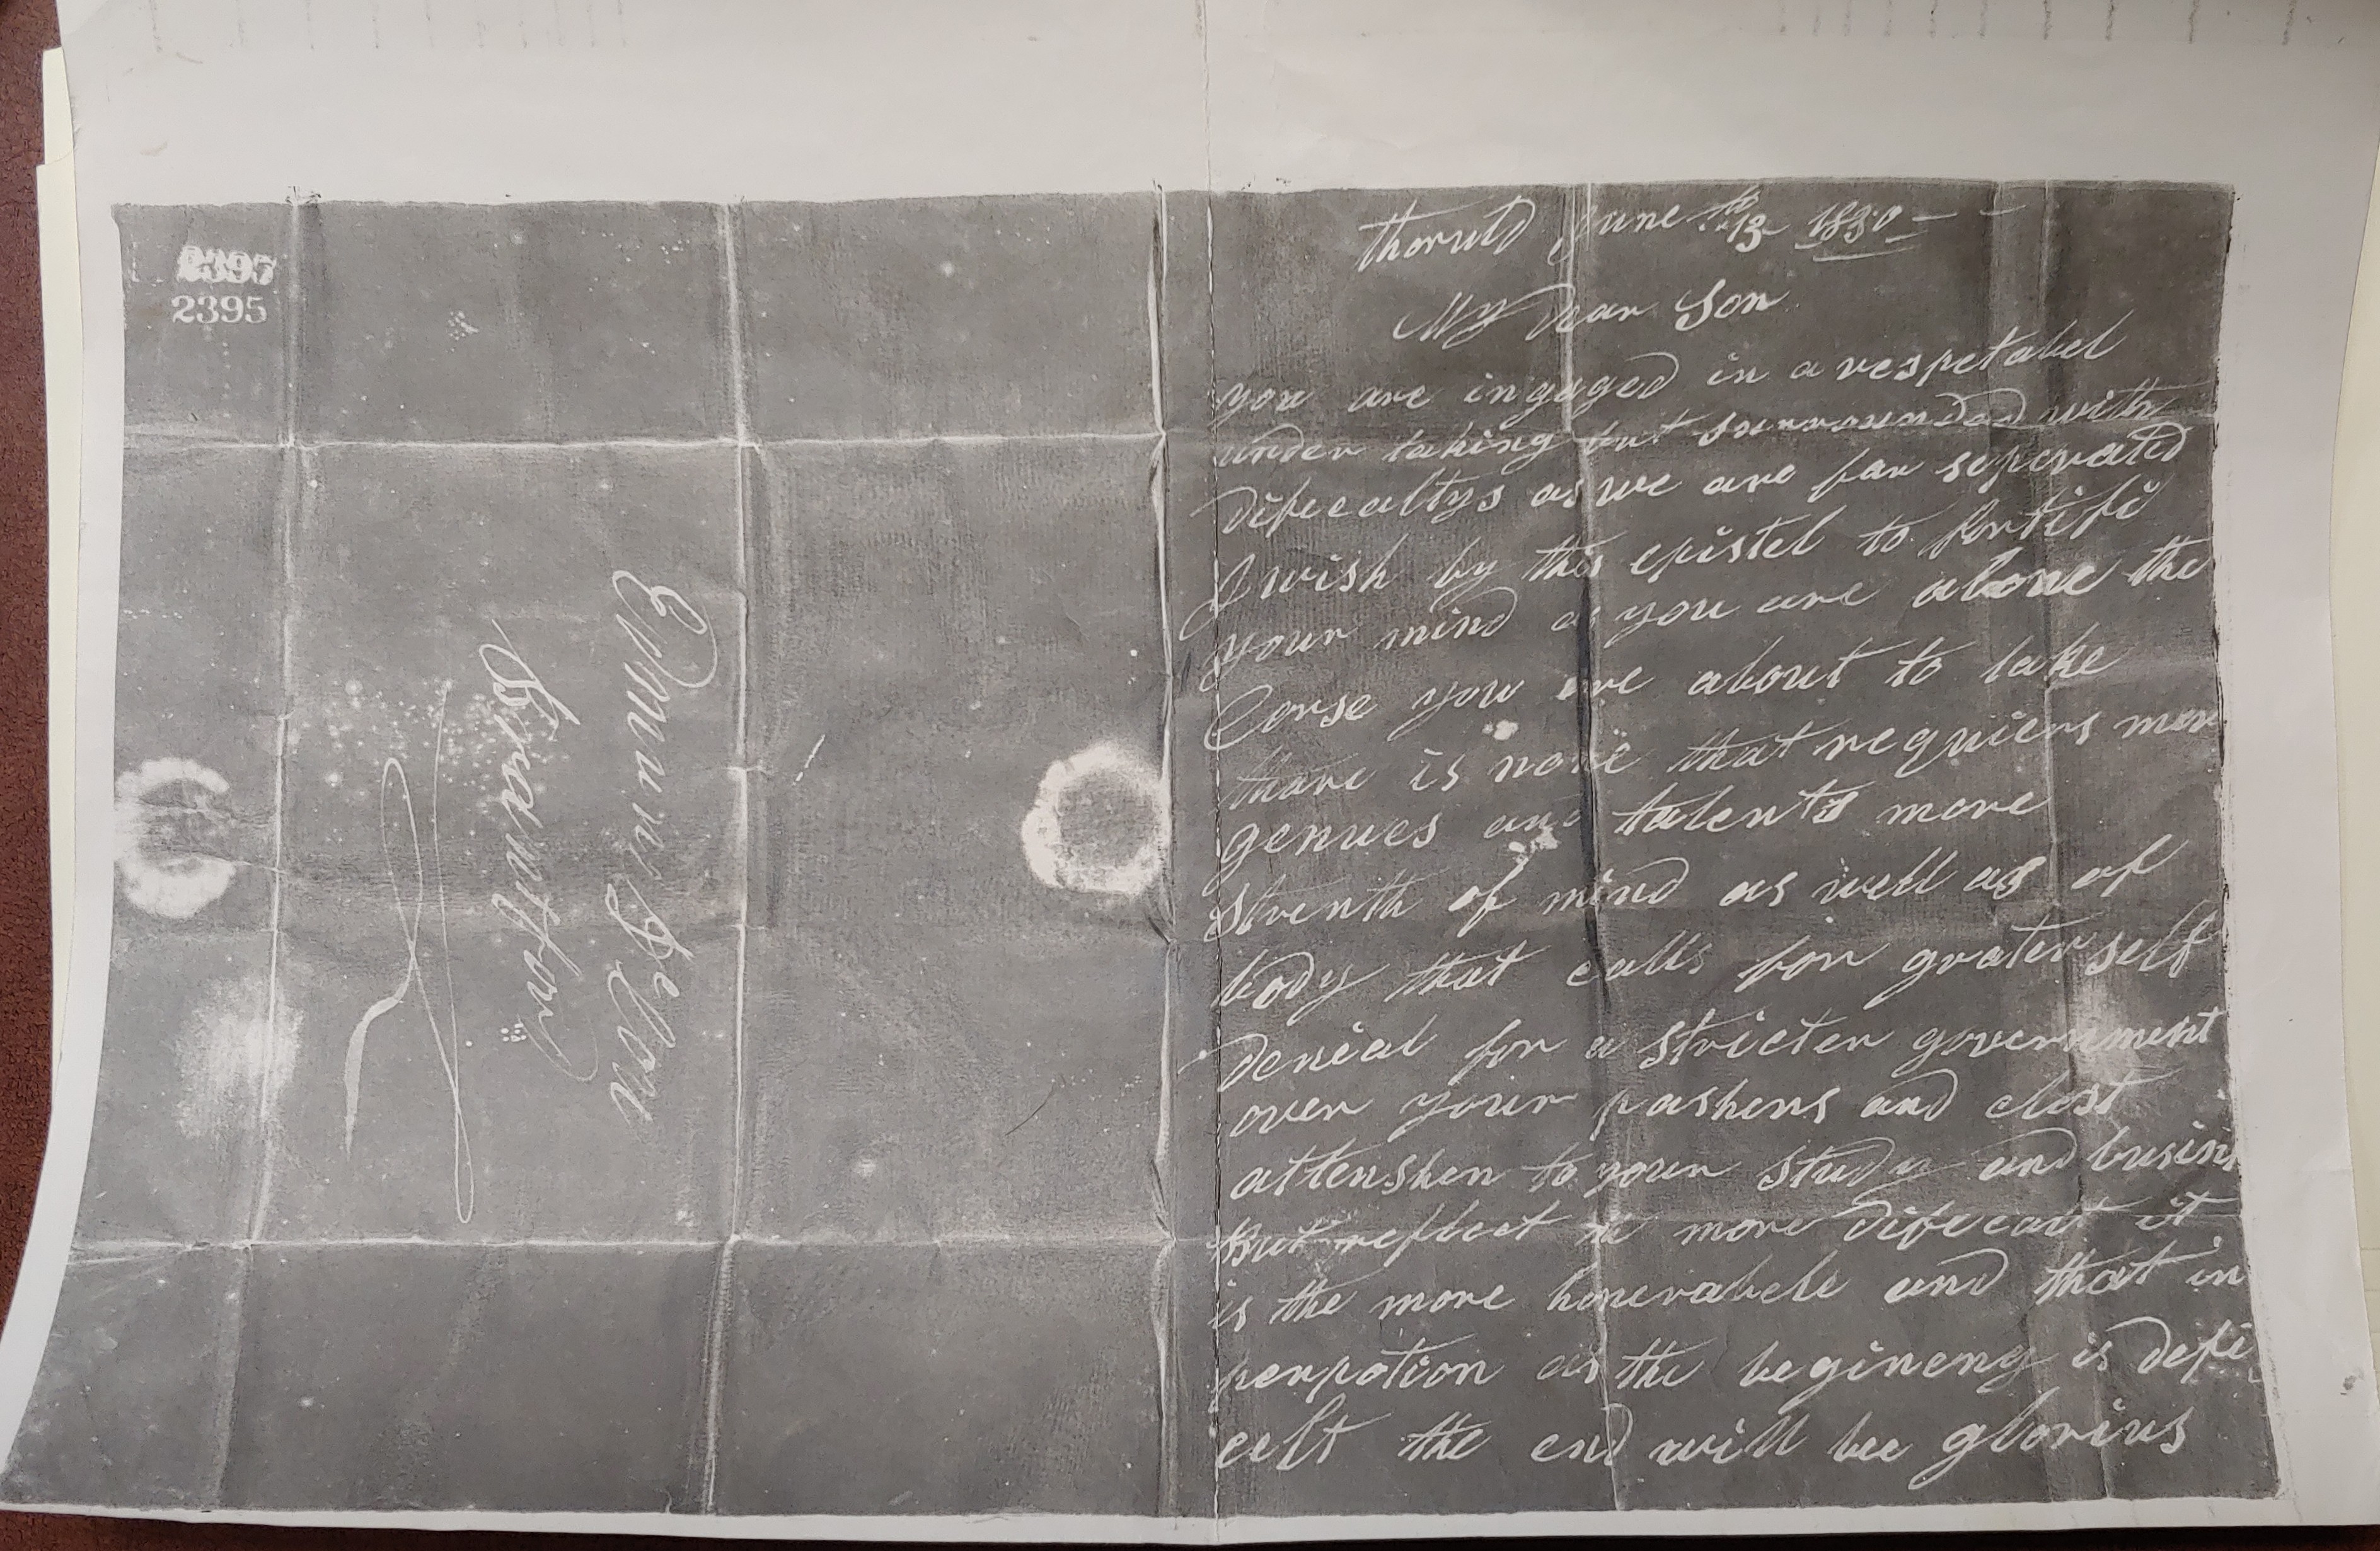 2395
2395
Brantford
thoruld June the 13 1830
My Dear Son
you are ingaged in a respetabel
under taking but sourrounded with
difecaltys as we are far seperated
I wish by this epistel to fortifi
your mind as you are alone the
Corse you are about to take
thare is none that requiers mor
genues and talents more
strenth of mind as well as of
body that calls for grater self
denial for a stricter government
over your pashens and clost
attenshen to your study and busins
But reflect the more difecart it
is the more honerabele and that in
perpotion as the begineng is defi
celt the end will bee glorius